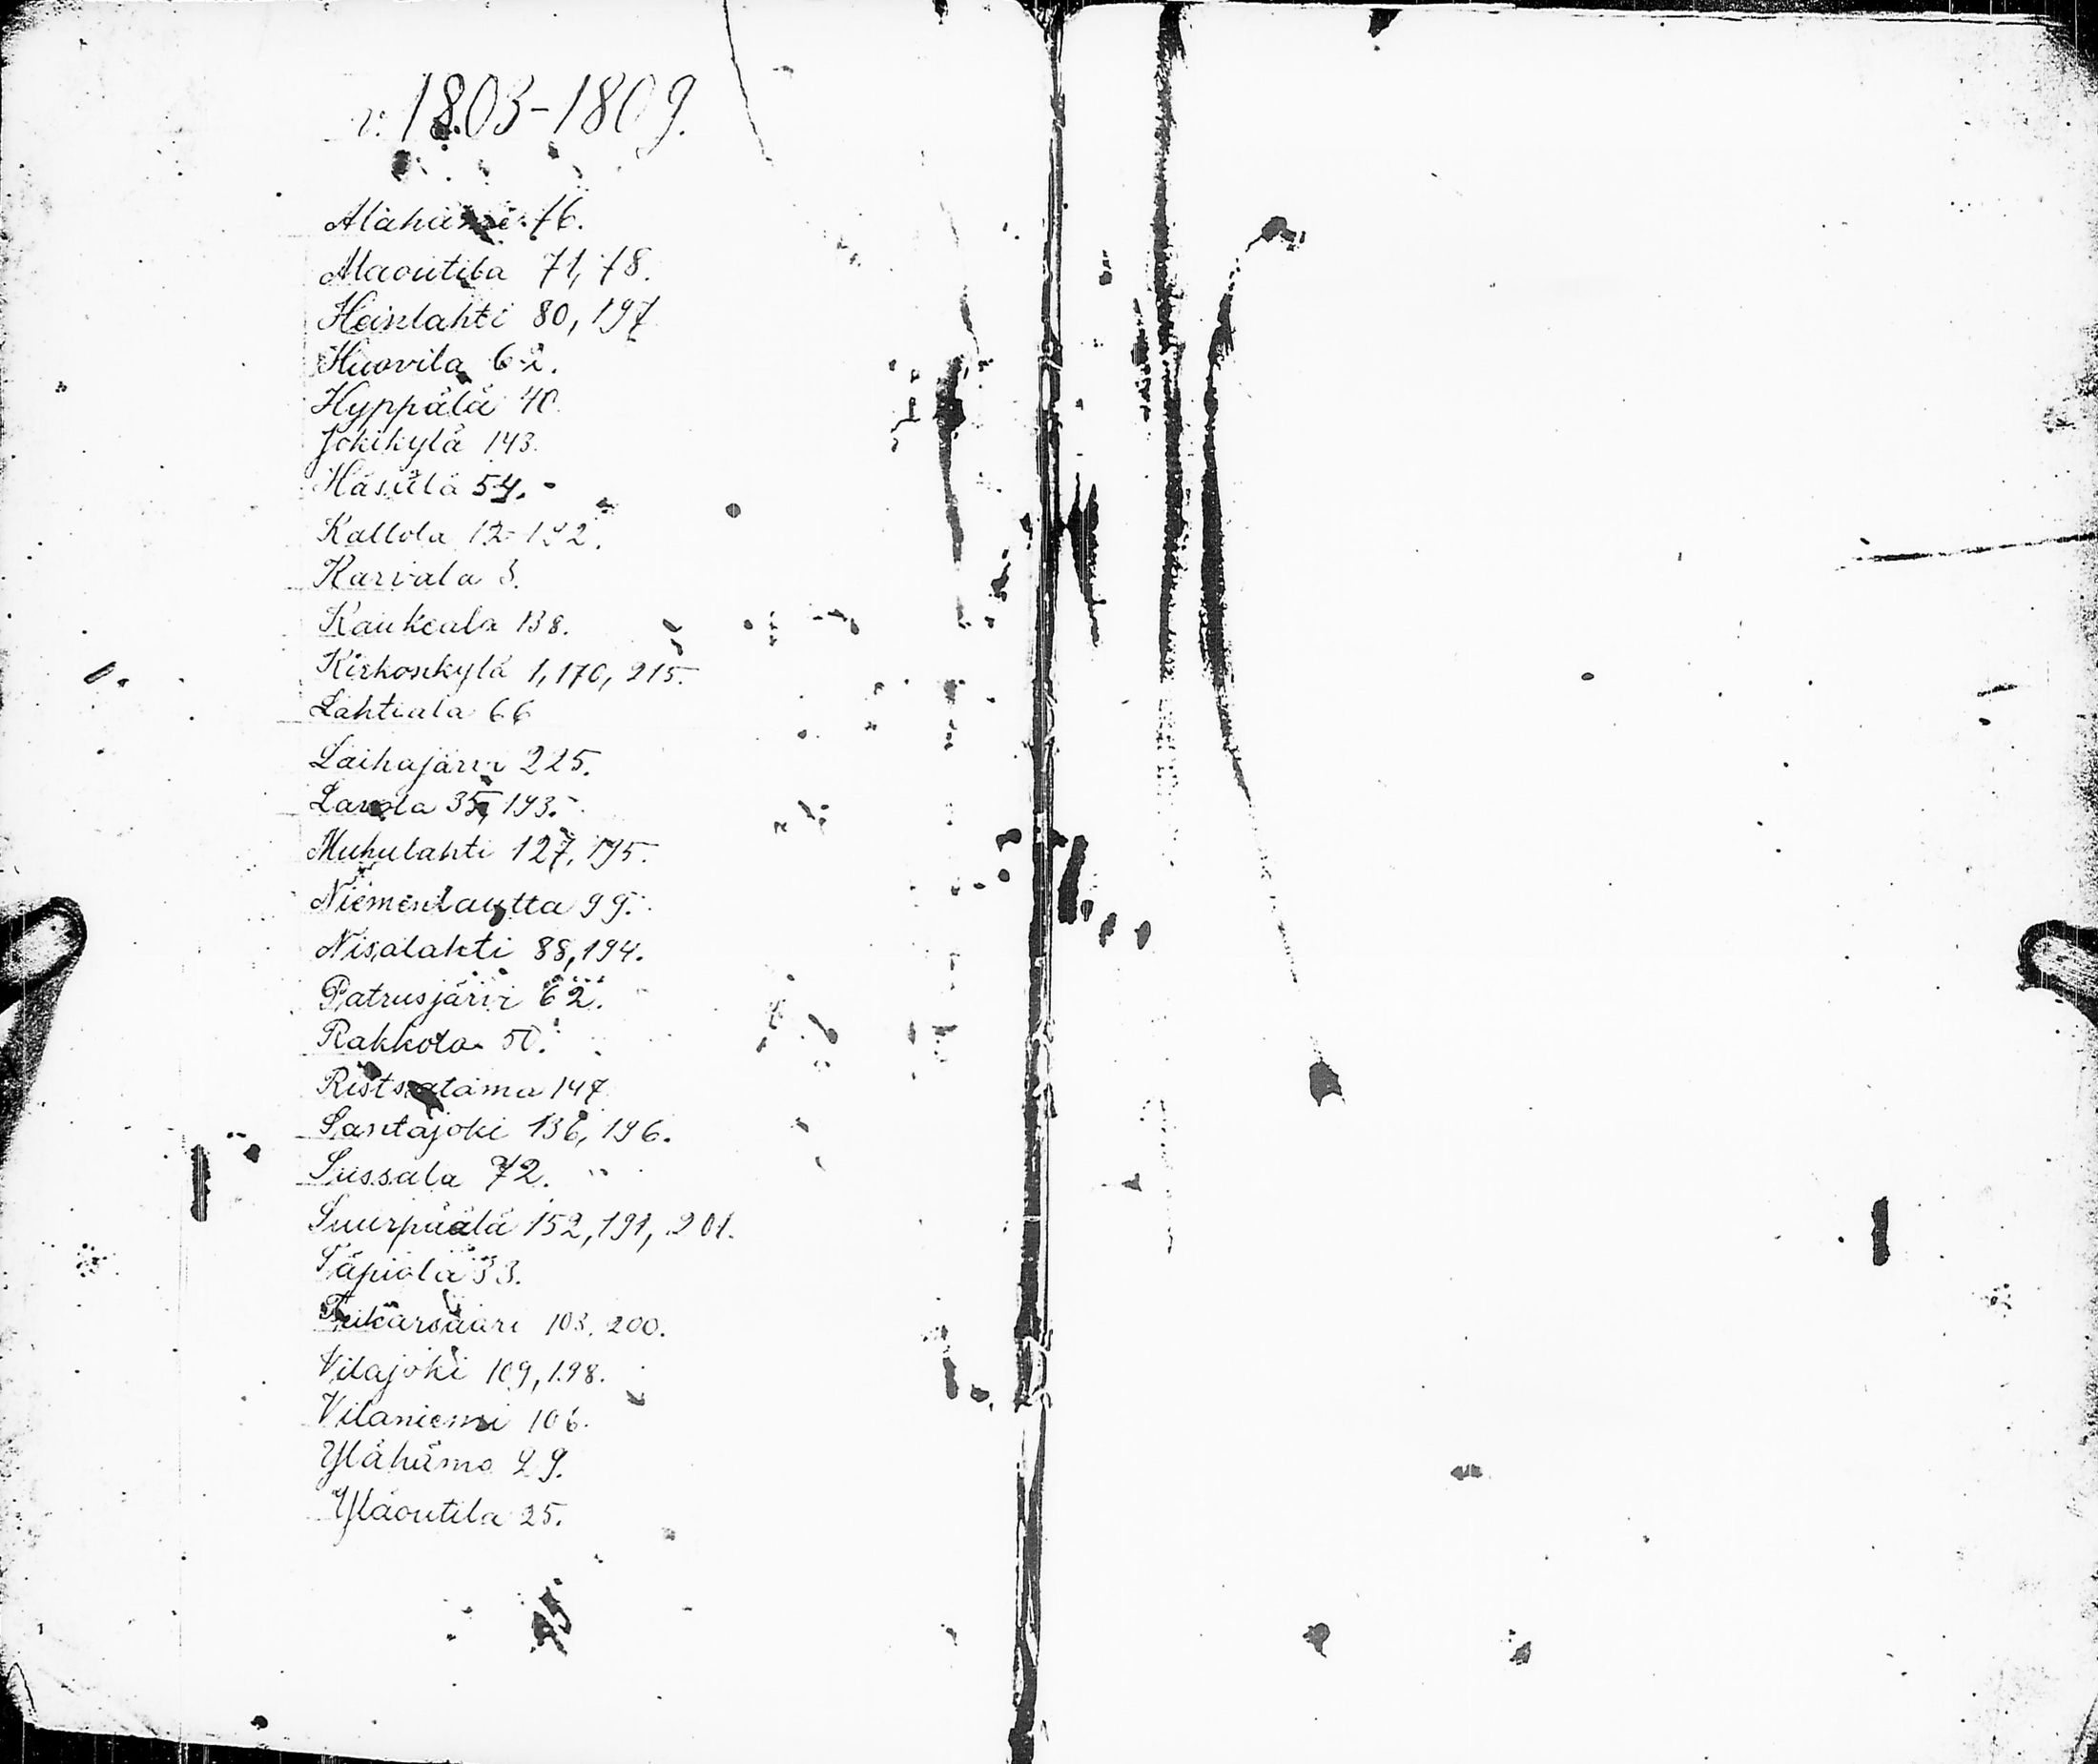 v. 1803-1809.
Alahämi 76.
Alaoutila 71, 78.
Heinlahti 80, 197
Huovila 62.
Hyppälä 40.
Jokikylä 143.
Häsülä 54.
Kallola 12-192.
Karvala 3.
Kaukeala 138.
Kirkonkylä 1, 170, 215.
Lahtiala 66
Laihajärvi 225.
Lavola 35, 193.
Muhulahti 127, 195.
Niemenlautta 99.
Nisalahti 88, 194.
Patrusjärvi 62.
Rakkola 50.
Ristsatama 147
Santajoki 136, 196.
Sussala 72.
Suurpäälä 152, 191, 201.
Täpiola 33.
Teikarsaari 103. 200.
Vilajoki 109, 198.
Vilaniemi 106.
Ylähämo 29.
Yläoutila 25.